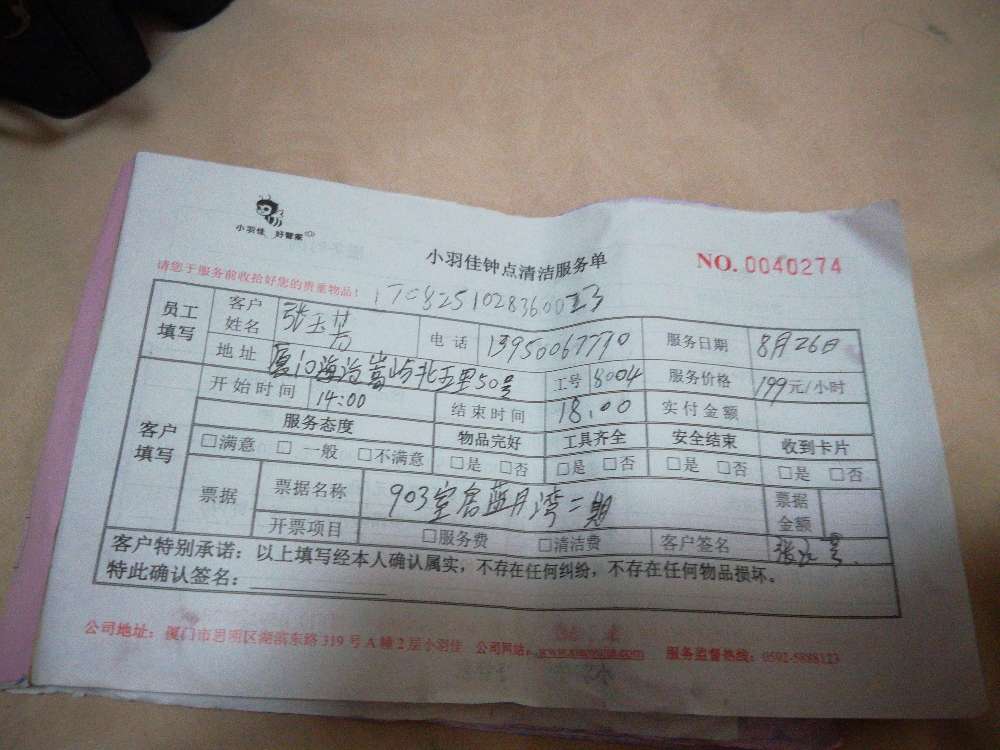 小羽佳 好管家
小羽佳钟点清洁服务单
NO. 0040274
请您于服务前收拾好您的贵重物品!
员工填写 客户姓名 张玉 电话 13950067710 服务日期 8月26日
地址 厦门海沧嵩屿北五里50号 工号 8004 服务价格 199元/小时
客户填写 开始时间 14:00 结束时间 18:00 实付金额
服务态度 物品完好 工具齐全 安全结束 收到卡片
□满意 □一般 □不满意 □是 □否 □是 □否 □是 □否 □是 □否
票据 票据名称 903室 蓝月湾二期 票据金额
开票项目 □服务费 □清洁费 客户签名 张
客户特别承诺:以上填写经本人确认属实,不存在任何纠纷,不存在任何物品损坏。
特此确认签名:
公司地址:厦门市思明区湖滨东路319号A幢2层小羽佳 公司网站: 服务监督热线:0592-5888123